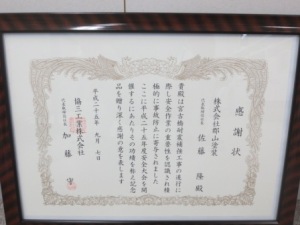 感謝状
株式会社郡山塗装
代表取締役社長 佐藤 隆殿
貴殿は宮古橋耐震補強工事の遂行に
際し安全作業の重要性を認識され積
極的に事故防止に寄与されました
ここに平成二十五年度安全大会を開
催するにあたりその功績を称え記念
品を贈り深く感謝の意を表します
平成二十五年 九月 七日
協三工業株式会社
代表取締役社長 加藤 実